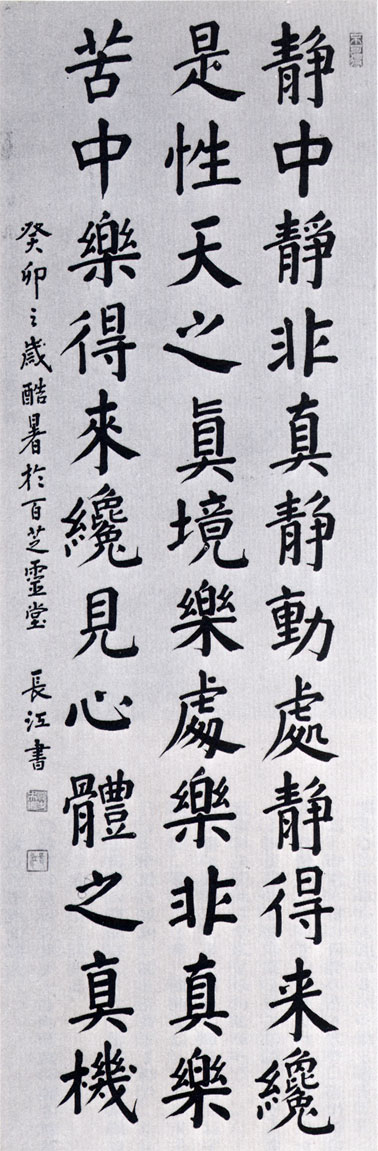 静中静非真静動處静得来纔
是性天之眞境樂處樂非真樂
苦中樂得來纔見心體之真機
癸卯之歲酷暑於百芝靈堂 長江書